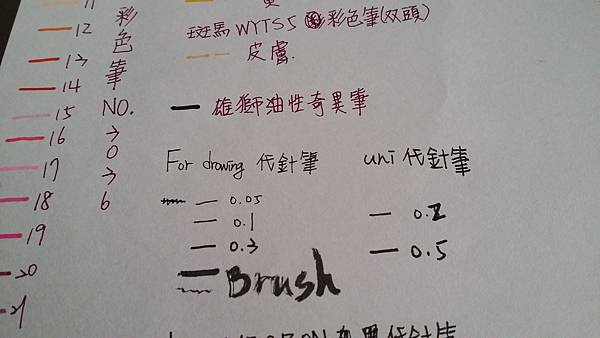 11
12
13
14
15
16
17
18
19
20
21
彩色筆
NO.
3036
斑馬 WYTS5 彩色筆(双頭)
皮膚.
雄獅油性奇異筆
For drawing 代針筆
0.05
0.1
0.3
Brush
uni 代針筆
0.2
0.5
代針筆